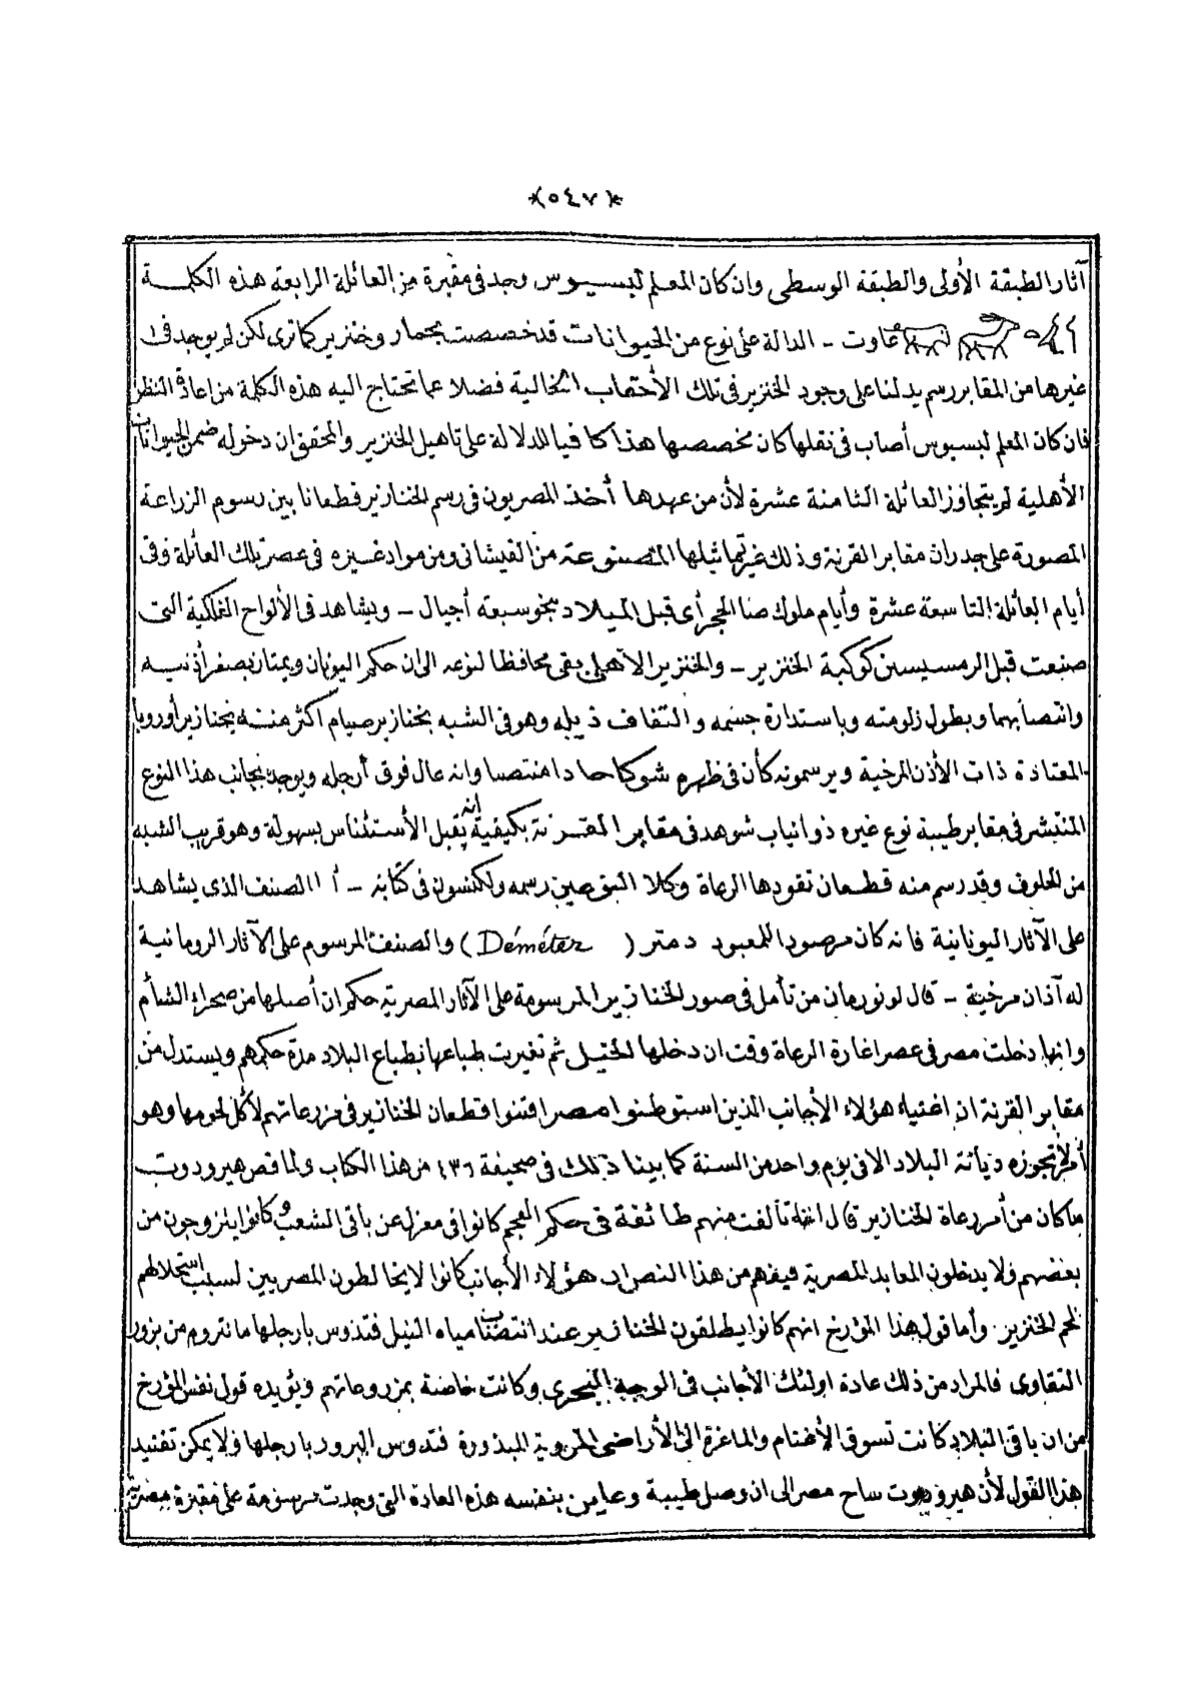 ﴿٥٤٧﴾
آثار الطبقة الأولى والطبقة الوسطى وان كان المعلم لبسيوس وجد فى مقبرة من العائلة الرابعة هذه الكلمة
عاوت - الدالة على نوع من الحيوانات قد خصصت بحمار وخنزير كما ترى لكن لم يوجد فى
غيرها من المقابر رسم يدلنا على وجود الخنزير فى تلك الأحقاب الخالية فضلا عما تحتاج اليه هذه الكلمة من اعادة النظر
فان كان المعلم لبسيوس أصاب فى نقلها كان مخصصها هذا كافيا للدلالة على تاهيل الخنزير والمحقق ان دخوله ضمن الحيوانات
الأهلية لم يتجاوز العائلة الثامنة عشرة لأن من عهدها أخذ المصريون فى رسم الخنازير قطعانا بين رسوم الزراعة
المصورة على جدران مقابر القرنة وذلك غير تماثيلها المصنوعة من القيشانى ومن مواد غيره فى عصر تلك العائلة وفى
أيام العائلة التاسعة عشرة وأيام ملوك صا الحجر أى قبل الميلاد بنحو سبعة أجيال - ويشاهد فى الألواح الفلكية التى
صنعت قبل الرمسيسين كوكبة الخنزير - والخنزير الأهلى بقى محافظا لنوعه الى ان حكم اليونان ويمتاز بصغر أذنيه
وانتصابهما وبطول زلومته وباستدارة جسمه والتفاف ذيله وهو فى الشبه بخنازير صيام اكثر منه بخنازير أوروبا
المعتادة ذات الأذن المرخية ويرسمونه كأن فى ظهره شوكا حادا منتصبا وانه عال فوق أرجله ويوجد بجانب هذا النوع
المنتشر فى مقابر طيبة نوع غيره ذو انياب شوهد فى مقابر القرنة بكيفية انه يقبل الأستئناس بسهولة وهو قريب الشبه
من الحلوف وقد رسم منه قطعان تقودها الرعاة وكلا النوعين رسمه ولكنسون فى كتابه - أما الصنف الذى يشاهد
على الآثار اليونانية فانه كان مرصودا للمعبود دمتر (Déméter) والصنف المرسوم على الآثار الرومانية
له آذان مرخية - قال لونورمان من تأمل فى صور الخنازير المرسومة على الآثار المصرية حكم ان أصلها من صحراء الشأم
وانها دخلت مصر فى عصر اغارة الرعاة وقت ان دخلها الخيل ثم تغيرت طباعها بطباع البلاد مدة حكمهم ويستدل من
مقابر القرنة ان اغنياء هؤلاء الأجانب الذين استوطنوا مصر اقتنوا قطعان الخنازير فى مزرعاتهم لأكل لحومها وهو
أمر لا تجوزه ديانة البلاد الا فى يوم واحد من السنة كما بينا ذلك فى صحيفة ٤٣٦ من هذا الكتاب ولما قص هيرودوت
ما كان من أمر رعاة الخنازير قال انه تألفت منهم طائفة فى حكم العجم كانوا فى معزل عن باقى الشعب وكانوا يتزوجون من
بعضهم ولا يدخلون المعابد المصرية فيفهم من هذا النص ان هؤلاء الأجانب كانوا لا يخالطون المصريين لسبب استحلالهم
لحم الخنزير. وأما قول هذا المؤرخ انهم كانوا يطلقون الخنازير عند انتضاب مياه النيل فتدوس بارجلها ما نثروه من بزور
التقاوى فالمراد من ذلك عادة اولئك الأجانب فى الوجه البحرى وكانت خاصة بمزروعاتهم ويؤيده قول نفس المؤرخ
من ان باقى البلاد كانت تسوق الأغنام والماعز الى الأراضى المروية المبذورة فتدوس البرور بارجلها ولا يمكن تفنيد
هذا القول لأن هيرودوت ساح مصر الى ان وصل طيبة وعاين بنفسه هذه العادة التى وجدت مرسومة على مقبرة مصرية